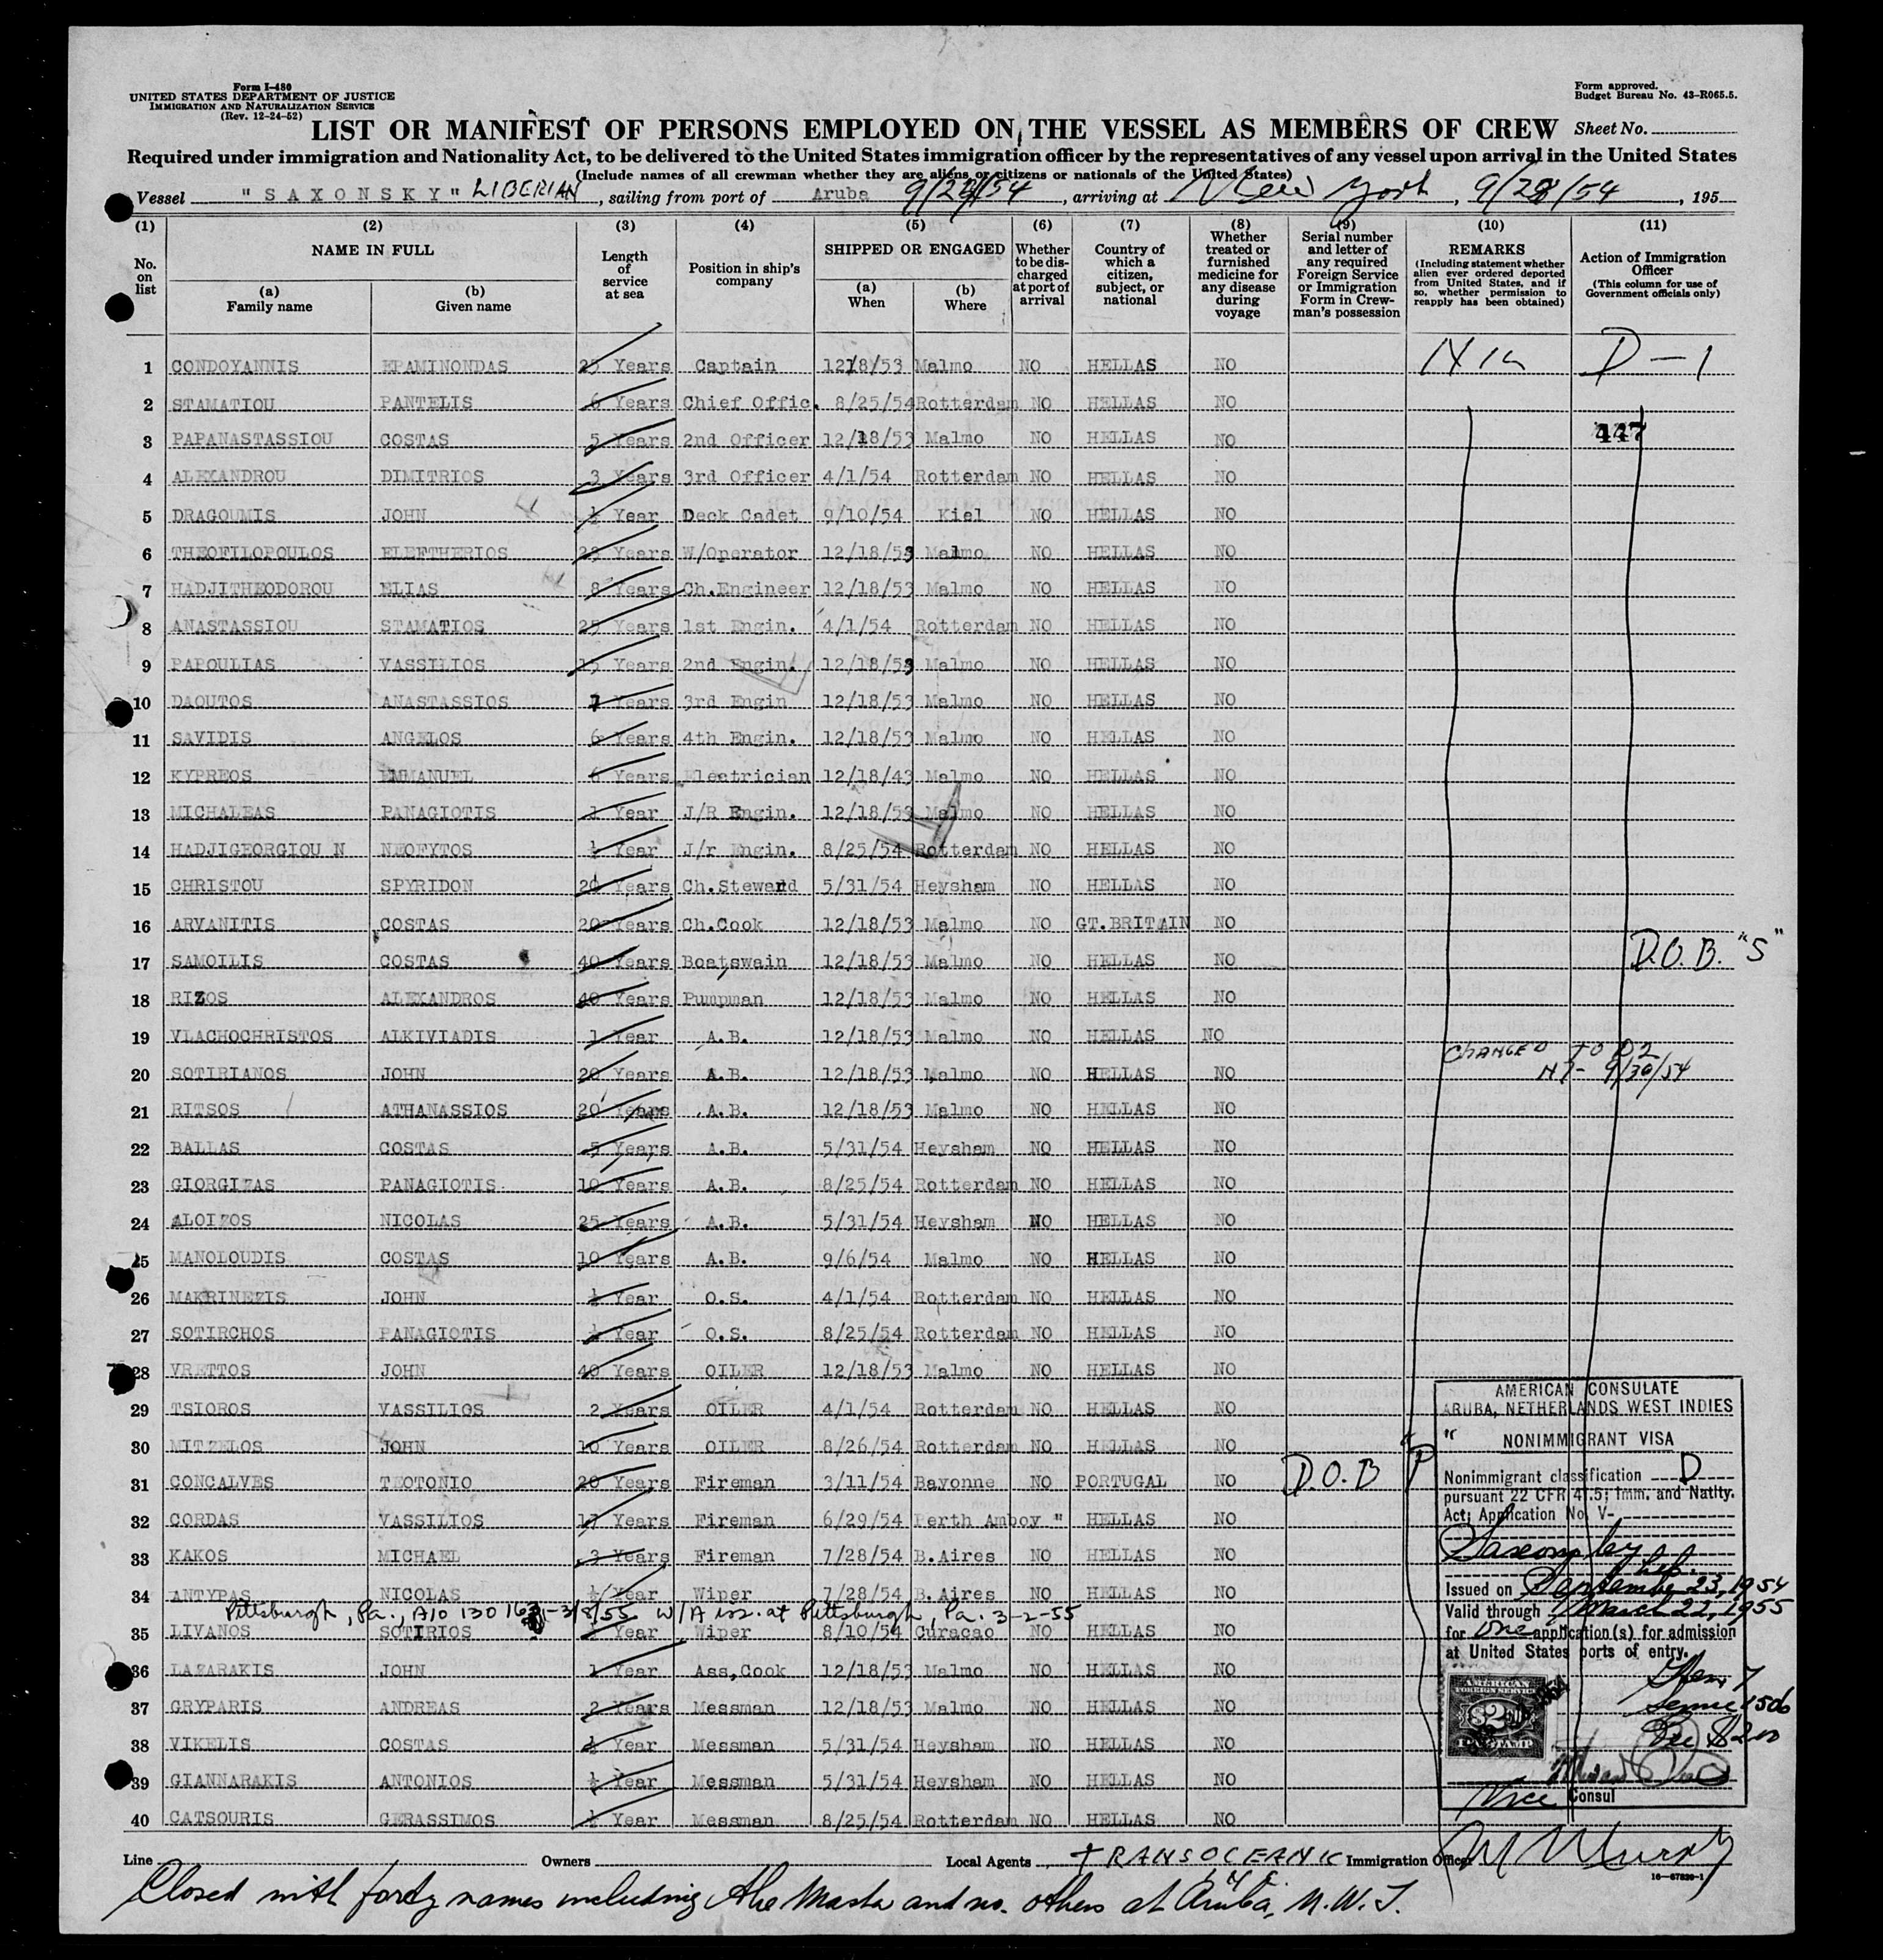 Form I-480
UNITED STATES DEPARTMENT OF JUSTICE
IMMIGRATION AND NATURALIZATION SERVICE
(Rev. 12-24-52)
Form approved.
Budget Bureau No. 43-R065.5.
LIST OR MANIFEST OF PERSONS EMPLOYED ON THE VESSEL AS MEMBERS OF CREW Sheet No.
Required under immigration and Nationality Act, to be delivered to the United States immigration officer by the representatives of any vessel upon arrival in the United States
(Include names of all crewman whether they are aliens or citizens or nationals of the United States)
Vessel "SAXONSKY" LIBERIAN, sailing from port of Aruba 9/23/54, arriving at New York, 9/28/54, 195
(1) No. on list
(2) NAME IN FULL
(a) Family name
(b) Given name
(3) Length of service at sea
(4) Position in ship's company
(5) SHIPPED OR ENGAGED
(a) When
(b) Where
(6) Whether to be discharged at port of arrival
(7) Country of which a citizen, subject, or national
(8) Whether treated or furnished medicine for any disease during voyage
(9) Serial number and letter of any required Foreign Service or Immigration Form in Crewman's possession
(10) REMARKS (Including statement whether alien ever ordered deported from United States, and if so, whether permission to reapply has been obtained)
(11) Action of Immigration Officer (This column for use of Government officials only)
1 CONDOYANNIS EPAMINONDAS 25 Years Captain 12/18/53 Malmo NO HELLAS NO D-1
2 STAMATIOU PANTELIS 6 Years Chief Offic. 8/25/54 Rotterdam NO HELLAS NO
3 PAPANASTASSIOU COSTAS 5 Years 2nd Officer 12/18/53 Malmo NO HELLAS NO 447
4 ALEXANDROU DIMITRIOS 3 Years 3rd Officer 4/1/54 Rotterdam NO HELLAS NO
5 DRAGOUMIS JOHN ½ Year Deck Cadet 9/10/54 Kiel NO HELLAS NO
6 THEOFILOPOULOS ELEFTHERIOS Years W/Operator 12/18/53 Malmo NO HELLAS NO
7 HADJITHEODOROU ELIAS 8 Years Ch.Engineer 12/18/53 Malmo NO HELLAS NO
8 ANASTASSIOU STAMATIOS 25 Years 1st Engin. 4/1/54 Rotterdam NO HELLAS NO
9 PAPOULIAS VASSILIOS 15 Years 2nd Engin. 12/18/53 Malmo NO HELLAS NO
10 DAOUTOS ANASTASSIOS Years 3rd Engin 12/18/53 Malmo NO HELLAS NO
11 SAVIDIS ANGELOS 6 Years 4th Engin. 12/18/53 Malmo NO HELLAS NO
12 KYPREOS EMMANUEL 6 Years Electrician 12/18/43 Malmo NO HELLAS NO
13 MICHALEAS PANAGIOTIS 1 Year J/R Engin. 12/18/53 Malmo NO HELLAS NO
14 HADJIGEORGIOU N NEOFYTOS ½ Year J/r Engin. 8/25/54 Rotterdam NO HELLAS NO
15 CHRISTOU SPYRIDON 20 Years Ch.Steward 5/31/54 Heysham NO HELLAS NO
16 ARVANITIS COSTAS 20 Years Ch.Cook 12/18/53 Malmo NO GT.BRITAIN NO
17 SAMOILIS COSTAS 40 Years Boatswain 12/18/53 Malmo NO HELLAS NO D.O.B. "S"
18 RIZOS ALEXANDROS 40 Years Pumpman 12/18/53 Malmo NO HELLAS NO
19 VLACHOCHRISTOS ALKIVIADIS 1 Year A.B. 12/18/53 Malmo NO HELLAS NO
CHANGED TO D2
20 SOTIRIANOS JOHN 20 Years A.B. 12/18/53 Malmo NO HELLAS NO 9/30/54
21 RITSOS ATHANASSIOS 20 Years A.B. 12/18/53 Malmo NO HELLAS NO
22 BALLAS COSTAS 5 Years A.B. 5/31/54 Heysham NO HELLAS NO
23 GIORGIZAS PANAGIOTIS 10 Years A.B. 8/25/54 Rotterdam NO HELLAS NO
24 ALOIZOS NICOLAS 25 Years A.B. 5/31/54 Heysham NO HELLAS NO
25 MANOLOUDIS COSTAS 10 Years A.B. 9/6/54 Malmo NO HELLAS NO
26 MAKRINEZIS JOHN ½ Year O.S. 4/1/54 Rotterdam NO HELLAS NO
27 SOTIRCHOS PANAGIOTIS ½ Year O.S. 8/25/54 Rotterdam NO HELLAS NO
28 VRETTOS JOHN 40 Years OILER 12/18/53 Malmo NO HELLAS NO
29 TSIOROS VASSILIOS 2 Years OILER 4/1/54 Rotterdam NO HELLAS NO
30 MITZELOS JOHN 10 Years OILER 8/26/54 Rotterdam NO HELLAS NO
31 CONCALVES TEOTONIO 20 Years Fireman 3/11/54 Bayonne NO PORTUGAL NO D.O.B "P"
32 CORDAS VASSILIOS 17 Years Fireman 6/29/54 Perth Amboy " HELLAS NO
33 KAKOS MICHAEL 3 Years Fireman 7/28/54 B.Aires NO HELLAS NO
34 ANTYPAS NICOLAS ½ Year Wiper 7/28/54 B.Aires NO HELLAS NO
Pittsburgh, Pa., 3/8/55 W/A iss. at Pittsburgh, Pa. 3-2-55
35 LIVANOS SOTIRIOS Year Wiper 8/10/54 Curacao NO HELLAS NO
36 LAZARAKIS JOHN 1 Year Ass,Cook 12/18/53 Malmo NO HELLAS NO
37 GRYPARIS ANDREAS 2 Years Messman 12/18/53 Malmo NO HELLAS NO
38 VIKELIS COSTAS ½ Year Messman 5/31/54 Heysham NO HELLAS NO
39 GIANNARAKIS ANTONIOS ½ Year Messman 5/31/54 Heysham NO HELLAS NO
40 CATSOURIS GERASSIMOS ½ Year Messman 8/25/54 Rotterdam NO HELLAS NO
AMERICAN CONSULATE
ARUBA, NETHERLANDS WEST INDIES
NONIMMIGRANT VISA
Nonimmigrant classification D
pursuant 22 CFR 41.5; Imm. and Natlty.
Act; Application No. V-
Issued on September 23, 1954
Valid through March 22, 1955
for one application(s) for admission
at United States ports of entry.
AMERICAN
FOREIGN SERVICE
$2
FEE STAMP
Vice Consul
Line Owners Local Agents TRANSOCEANIC Immigration Officer
16-67830-1
Closed with forty names including the Master and no others at Aruba, N.W.I.